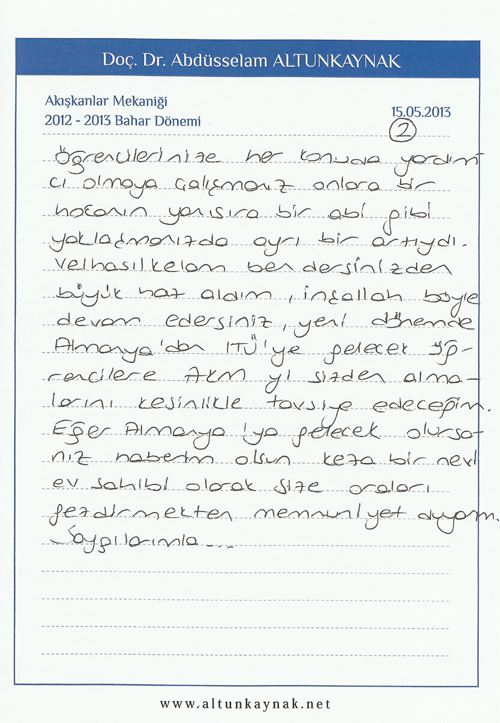 Doç. Dr. Abdüsselam ALTUNKAYNAK
Akışkanlar Mekaniği
15.05.2013
2012 - 2013 Bahar Dönemi
2
Öğrencilerinize her konuda yardım
cı olmaya çalışmanız onlara bir
hocanın yanısıra bir abi gibi
yaklaşmanızda ayrı bir artıydı.
Velhasılkelam ben dersinizden
büyük haz aldım, inşallah böyle
devam edersiniz, yeni dönemde
Almanya'dan İTÜ'ye gelecek öğ-
rencilere AKM yi sizden alma-
larını kesinlikle tavsiye edeceğim.
Eğer Almanya'ya gelecek olursa-
nız haberim olsun keza bir nevi
ev sahibi olarak size oraları
gezdirmekten memnuniyet duyarım.
Saygılarımla...
www.altunkaynak.net